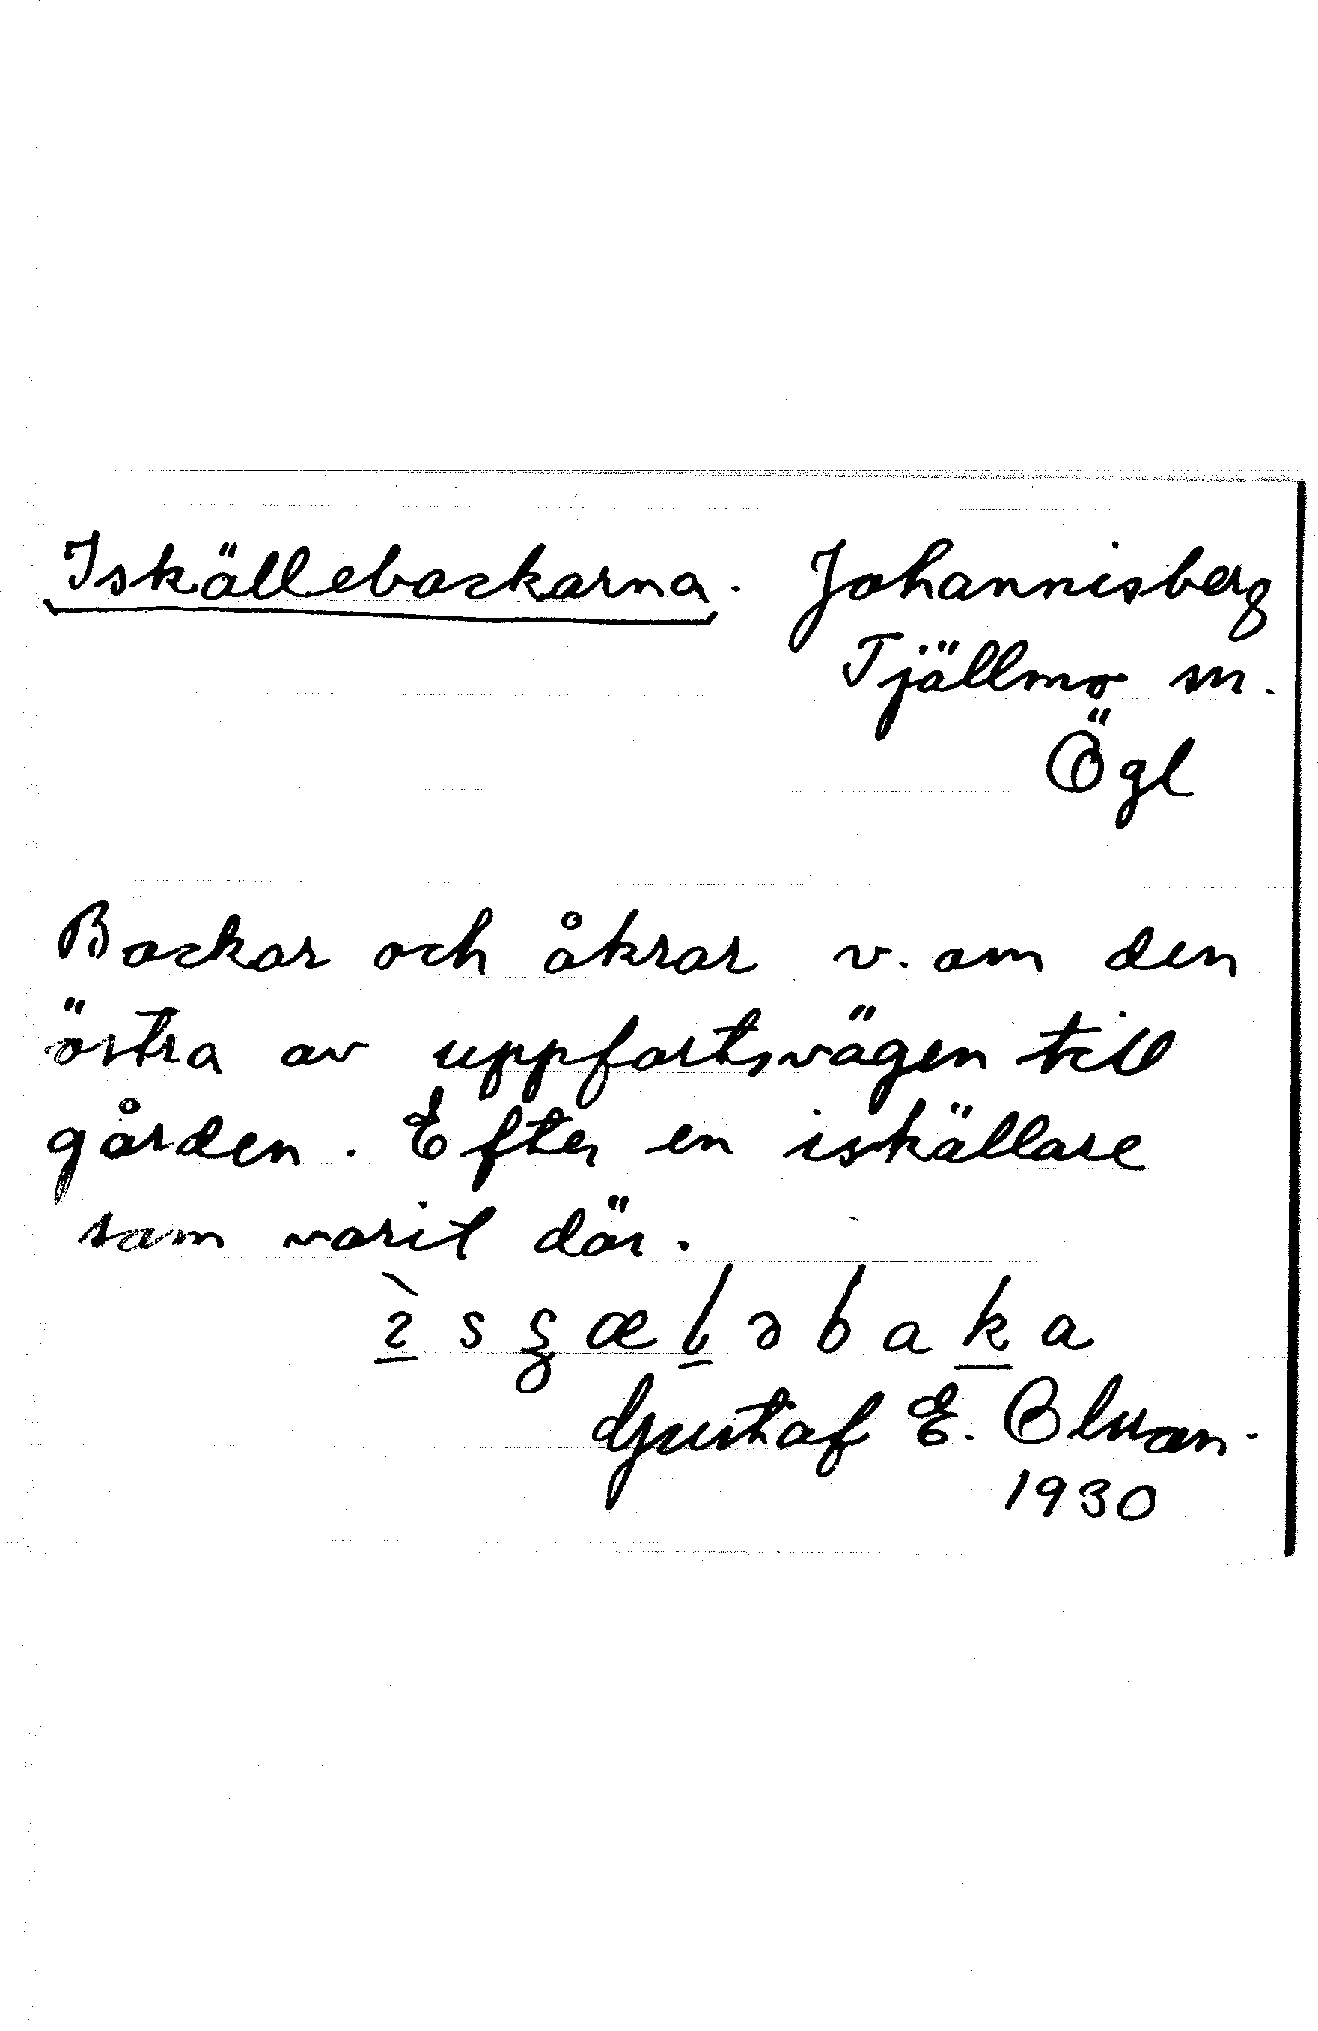 Iskällebackarna. Johannisberg
Tjällmo sn.
Ögl
Backar och åkrar v. om den
östra av uppfartsvägen till
gården. Efter en iskällare
som varit där.
Gustaf E. Olsson.
1930